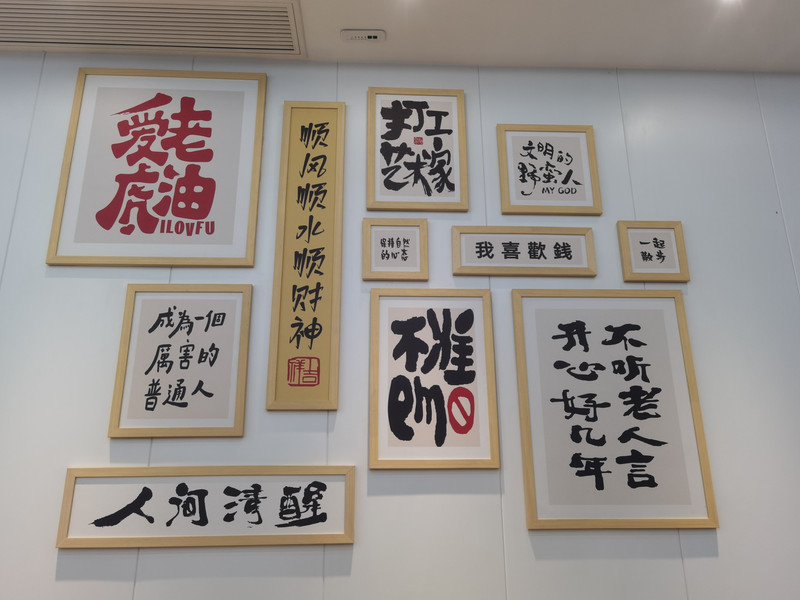 爱老
虎油
ILOVFU
顺风顺水顺财神
打工
艺术家
文明的
野蛮人
MY GOD
保持自然
的心
我喜歡錢
一起
散步
成為一個
厲害的
普通人
不准
emo
不听老人言
开心好几年
人间清醒